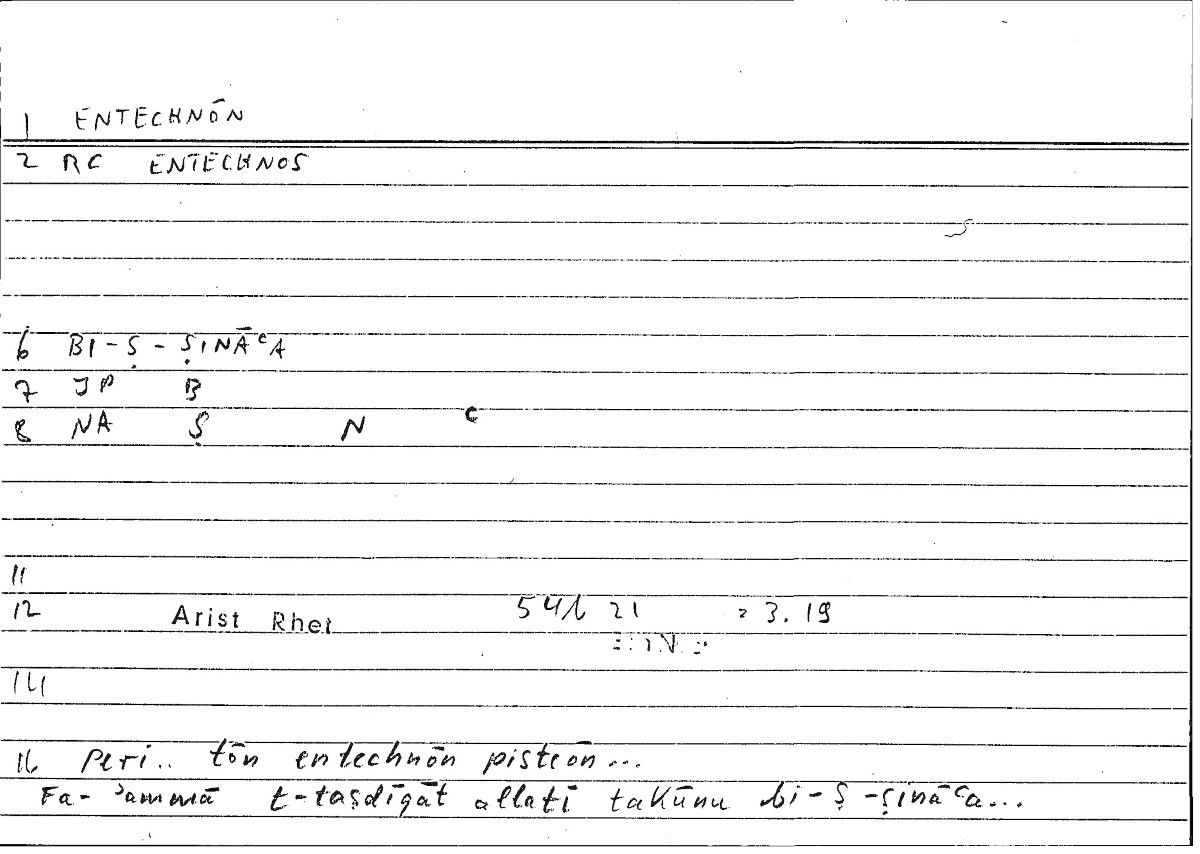 1 ENTECHNŌN
2 RC ENTECHNOS
6 BI-Ṣ-ṢINĀʿA
7 JP B
8 NA Ṣ N ʿ
11
12 Arist Rhet 54b 21 = 3.19
14
16 Peri.. tōn entechnōn pisteōn...
Fa-ʾammā t-taṣdīqāt allatī takūnu bi-ṣ-ṣināʿa...